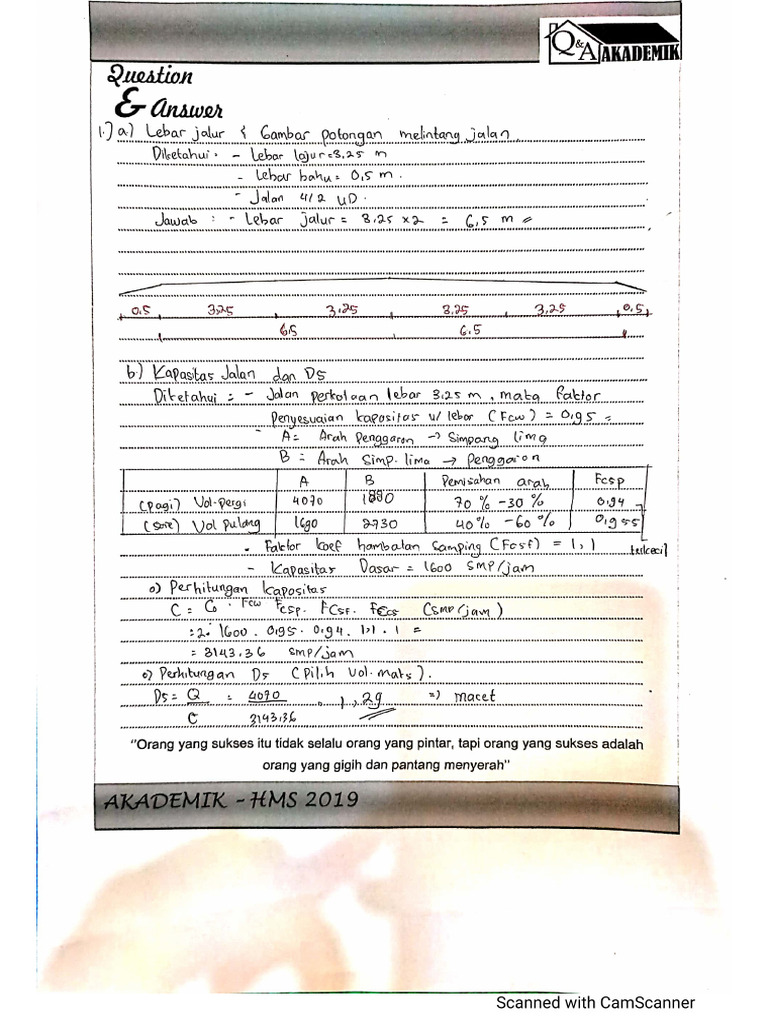 Q&A AKADEMIK
Question
& Answer
1.) a.) Lebar jalur & Gambar potongan melintang jalan
Diketahui: - Lebar lajur = 3,25 m
- Lebar bahu = 0,5 m.
- Jalan 4/2 UD.
Jawab : - Lebar jalur = 3,25 x 2 = 6,5 m //
0.5 3.25 3.25 3.25 3.25 0.5
6.5 6.5
b.) Kapasitas Jalan dan DS
Diketahui = - Jalan perkotaan lebar 3.25 m, maka faktor
Penyesuaian kapasitas u/ lebar (Fcw) = 0,95
A = Arah Penggaron → Simpang lima
B = Arah Simp. lima → Penggaron
A B Pemisahan arah Fcsp
(pagi) Vol-pergi 4070 70 % - 30 % 0.94
(sore) Vol pulang 1690 2730 40% - 60 % 0,955
terkecil
- Faktor koef hambatan samping (FCSF) = 1,1
- Kapasitas Dasar = 1600 SMP/jam
o) Perhitungan kapasitas
C = Co . Fcw Fcsp. FCSF. FCcs (SMP/jam)
= 2. 1600 . 0.95 . 0.94 . 1,1 . 1 =
= 3143.36 smp/jam
o) Perhitungan DS (Pilih Vol. maks).
DS = Q/C = 4070/3143.36 = 1,29 => macet
"Orang yang sukses itu tidak selalu orang yang pintar, tapi orang yang sukses adalah
orang yang gigih dan pantang menyerah"
AKADEMIK - HMS 2019
Scanned with CamScanner